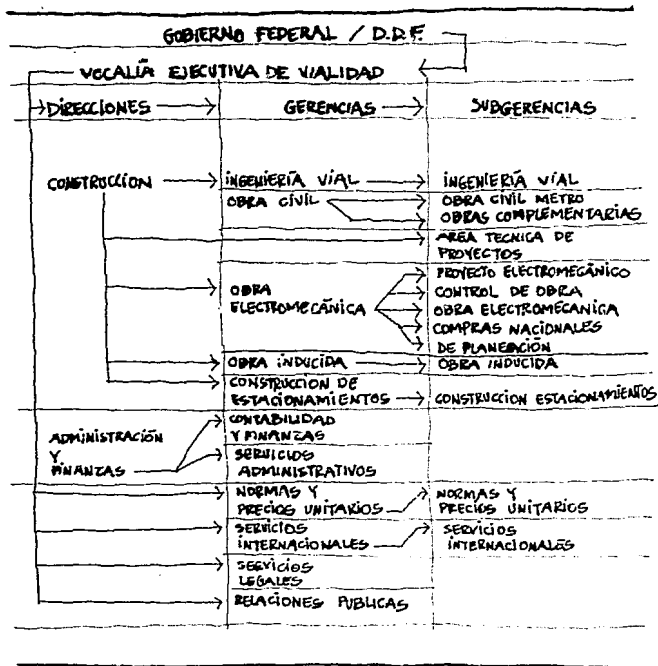 GOBIERNO FEDERAL / D.D.F.
VOCALÍA EJECUTIVA DE VIALIDAD
DIRECCIONES GERENCIAS SUBGERENCIAS
CONSTRUCCION INGENIERÍA VIAL INGENIERÍA VIAL
OBRA CIVIL OBRA CIVIL METRO
OBRAS COMPLEMENTARIAS
AREA TECNICA DE
PROYECTOS
PROYECTO ELECTROMECÁNICO
OBRA CONTROL DE OBRA
ELECTROMECÁNICA OBRA ELECTROMECANICA
COMPRAS NACIONALES
DE PLANEACIÓN
OBRA INDUCIDA OBRA INDUCIDA
CONSTRUCCION DE
ESTACIONAMIENTOS CONSTRUCCION ESTACIONAMIENTOS
ADMINISTRACIÓN
Y
FINANZAS
CONTABILIDAD
Y FINANZAS
SERVICIOS
ADMINISTRATIVOS
NORMAS Y NORMAS Y
PRECIOS UNITARIOS PRECIOS UNITARIOS
SERVICIOS SERVICIOS
INTERNACIONALES INTERNACIONALES
SERVICIOS
LEGALES
RELACIONES PUBLICAS